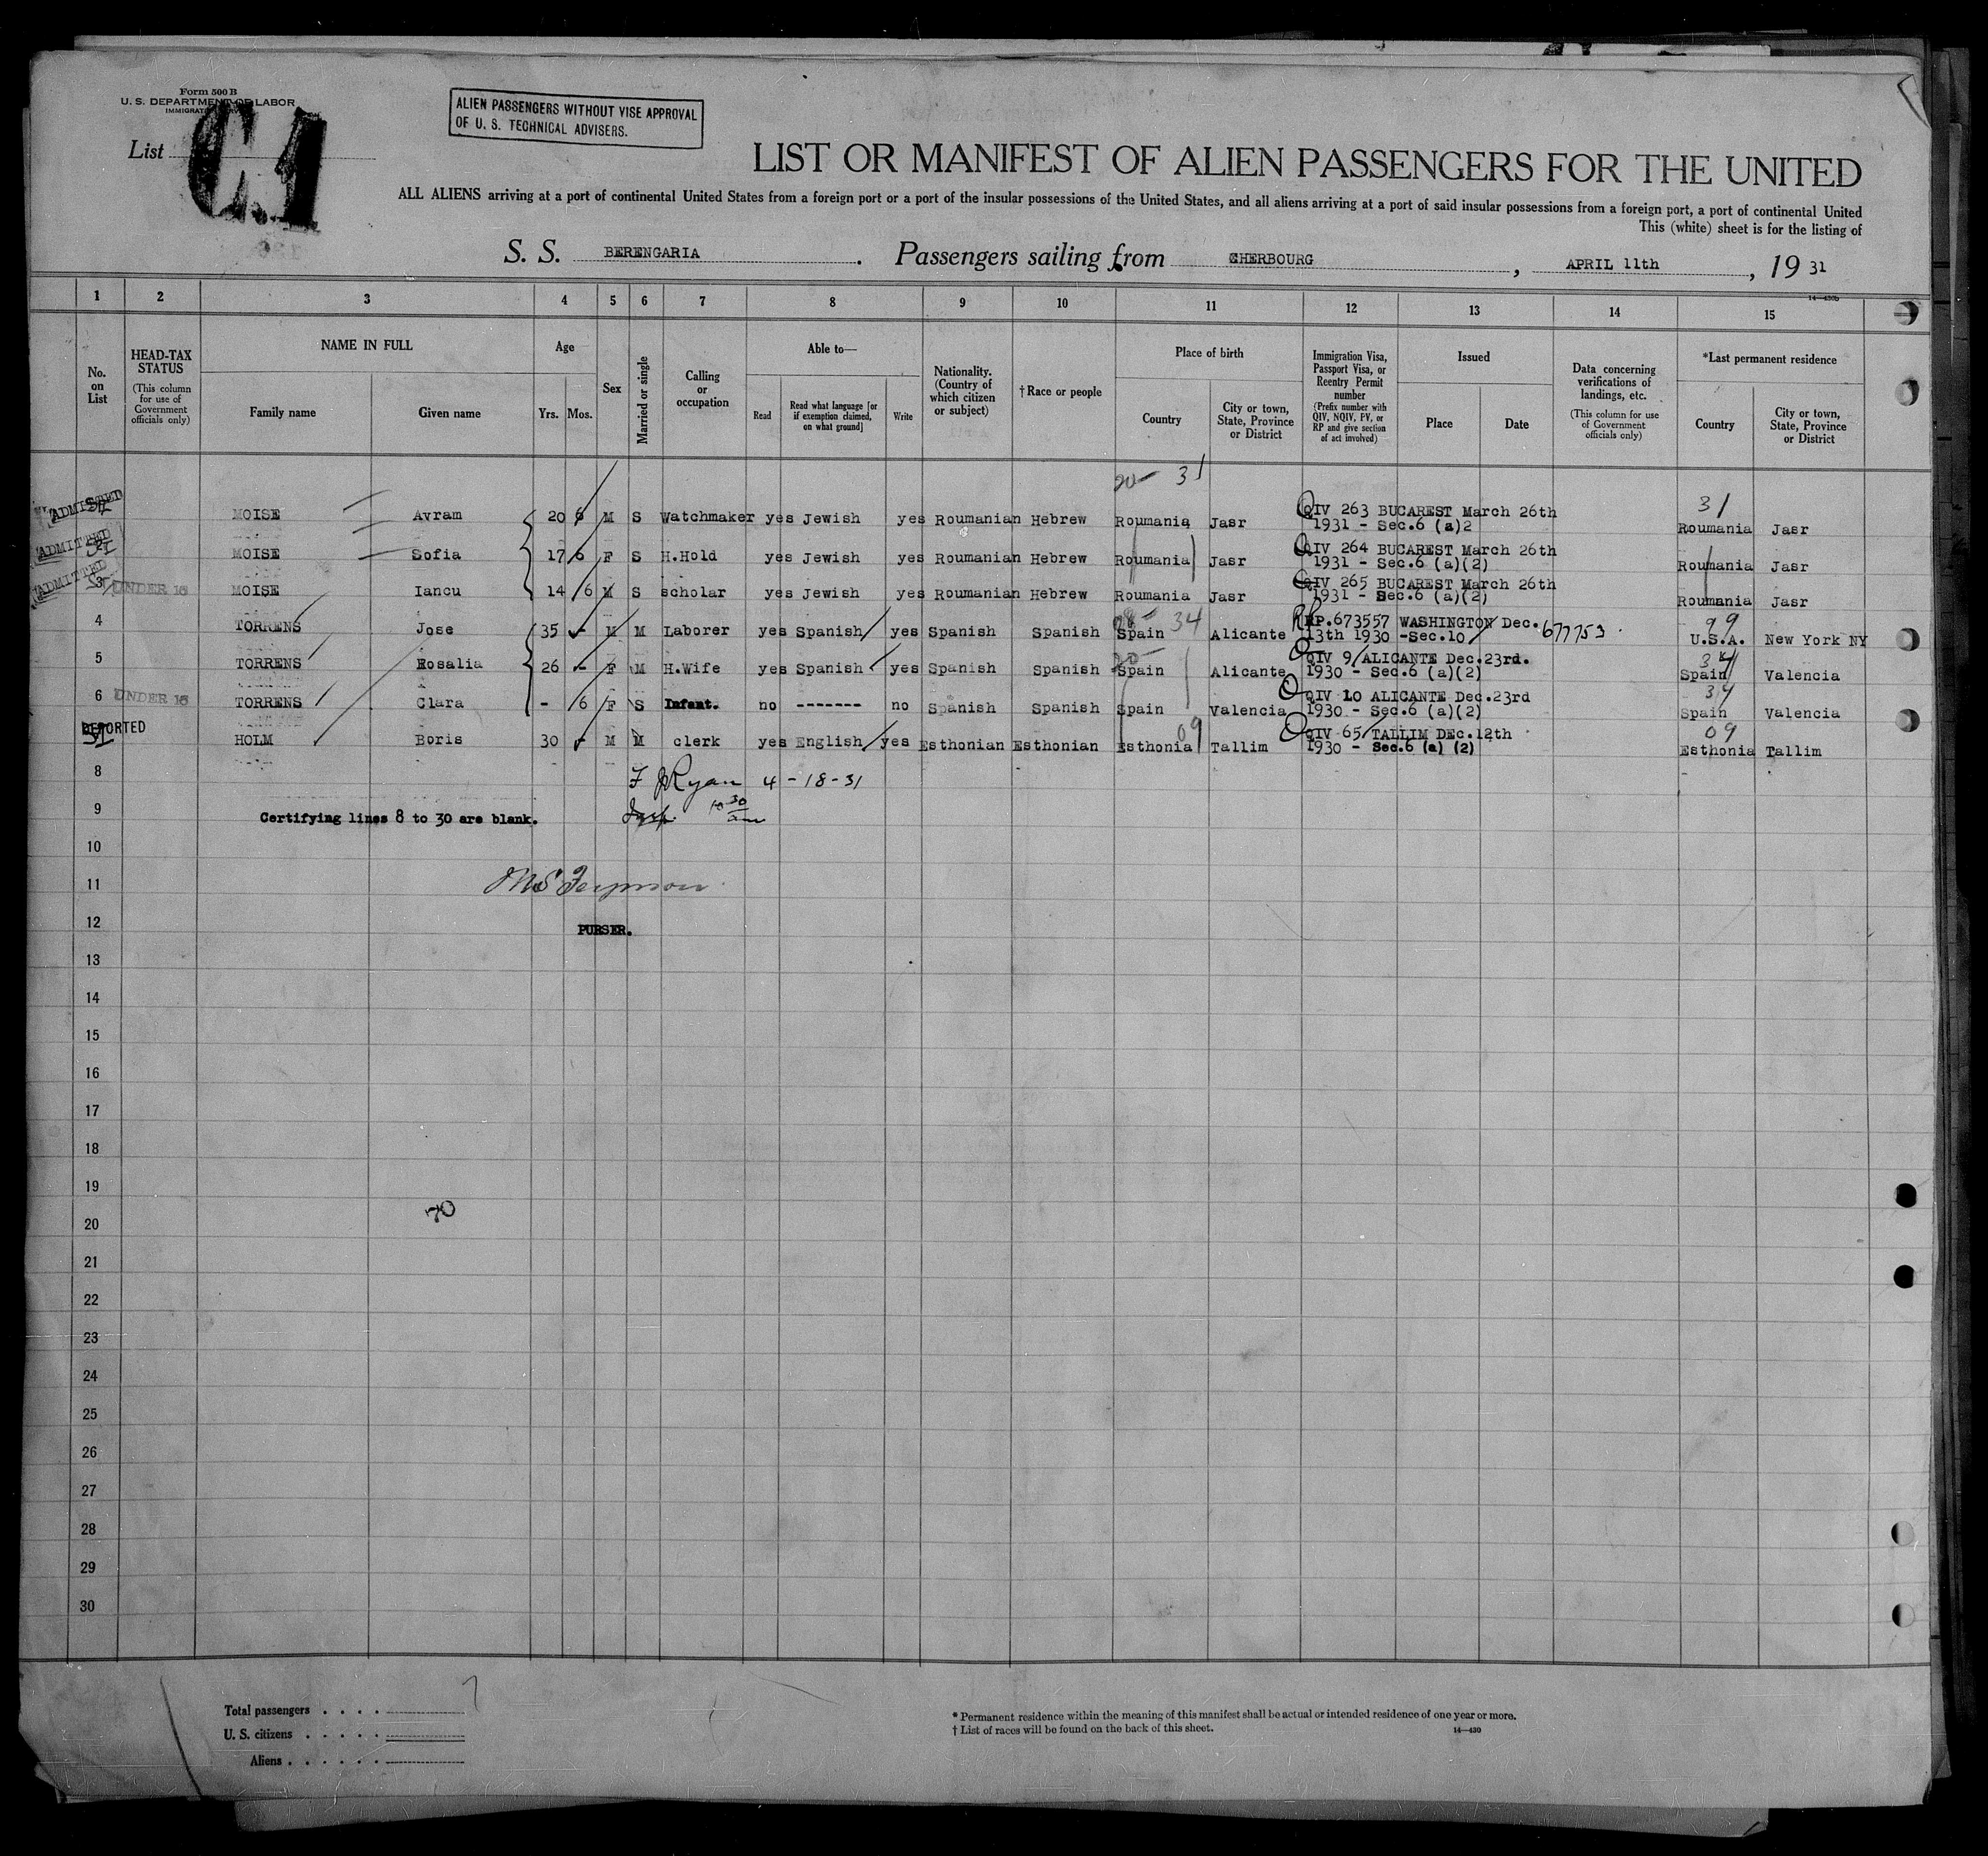 Form 500 B
U. S. DEPARTMENT OF LABOR
List C.1
ALIEN PASSENGERS WITHOUT VISE APPROVAL
OF U. S. TECHNICAL ADVISERS.
LIST OR MANIFEST OF ALIEN PASSENGERS FOR THE UNITED
ALL ALIENS arriving at a port of continental United States from a foreign port or a port of the insular possessions of the United States, and all aliens arriving at a port of said insular possessions from a foreign port, a port of continental United
This (white) sheet is for the listing of
S. S. BERENGARIA. Passengers sailing from CHERBOURG, APRIL 11th, 19 31
14—430b
1 2 3 4 5 6 7 8 9 10 11 12 13 14 15
No. on List
HEAD-TAX STATUS
(This column for use of Government officials only)
NAME IN FULL
Family name
Given name
Age
Yrs. Mos.
Sex
Married or single
Calling or occupation
Able to—
Read
Read what language [or if exemption claimed, on what ground]
Write
Nationality. (Country of which citizen or subject)
† Race or people
Place of birth
Country
City or town, State, Province or District
Immigration Visa, Passport Visa, or Reentry Permit number
(Prefix number with QIV, NQIV, PV, or RP and give section of act involved)
Issued
Place
Date
Data concerning verifications of landings, etc.
(This column for use of Government officials only)
*Last permanent residence
Country
City or town, State, Province or District
20- 31
31
ADMITTED SI MOISE Avram 20 6 M S Watchmaker yes Jewish yes Roumanian Hebrew Roumania Jasr QIV 263 BUCAREST March 26th
1931 - Sec.6 (a)2 Roumania Jasr
ADMITTED SI MOISE Sofia 17 6 F S H.Hold yes Jewish yes Roumanian Hebrew Roumania Jasr QIV 264 BUCAREST March 26th
1931 - Sec.6 (a)(2) Roumania Jasr
ADMITTED 3 SI UNDER 16 MOISE Iancu 14 6 M S scholar yes Jewish yes Roumanian Hebrew Roumania Jasr QIV 265 BUCAREST March 26th
1931 - Sec.6 (a)(2) Roumania Jasr
34 99
4 TORRENS Jose 35 - M M Laborer yes Spanish yes Spanish Spanish Spain Alicante RP.673557 WASHINGTON Dec.
13th 1930 -Sec.10 677753. U.S.A. New York NY
5 TORRENS Rosalia 26 - F M H.Wife yes Spanish yes Spanish Spanish Spain Alicante QIV 9 ALICANTE Dec.23rd.
1930 - Sec.6 (a)(2) Spain Valencia
34
6 UNDER 16 TORRENS Clara - 6 F S Infant. no ------- no Spanish Spanish Spain Valencia QIV 10 ALICANTE Dec.23rd
1930 - Sec.6 (a)(2) Spain Valencia
09 09
DEPORTED SI HOLM Boris 30 - M M clerk yes English yes Esthonian Esthonian Esthonia Tallim QIV 65 TALLIM DEc.12th
1930 - Sec.6 (a) (2) Esthonia Tallim
8 F J Ryan 4-18-31
Insp. 10 30 am
9 Certifying lines 8 to 30 are blank.
10
11
12 PURSER.
13
14
15
16
17
18
19
70
20
21
22
23
24
25
26
27
28
29
30
Total passengers . . . . 7
U. S. citizens . . . . .
Aliens . . . . . .
* Permanent residence within the meaning of this manifest shall be actual or intended residence of one year or more.
† List of races will be found on the back of this sheet. 14—430